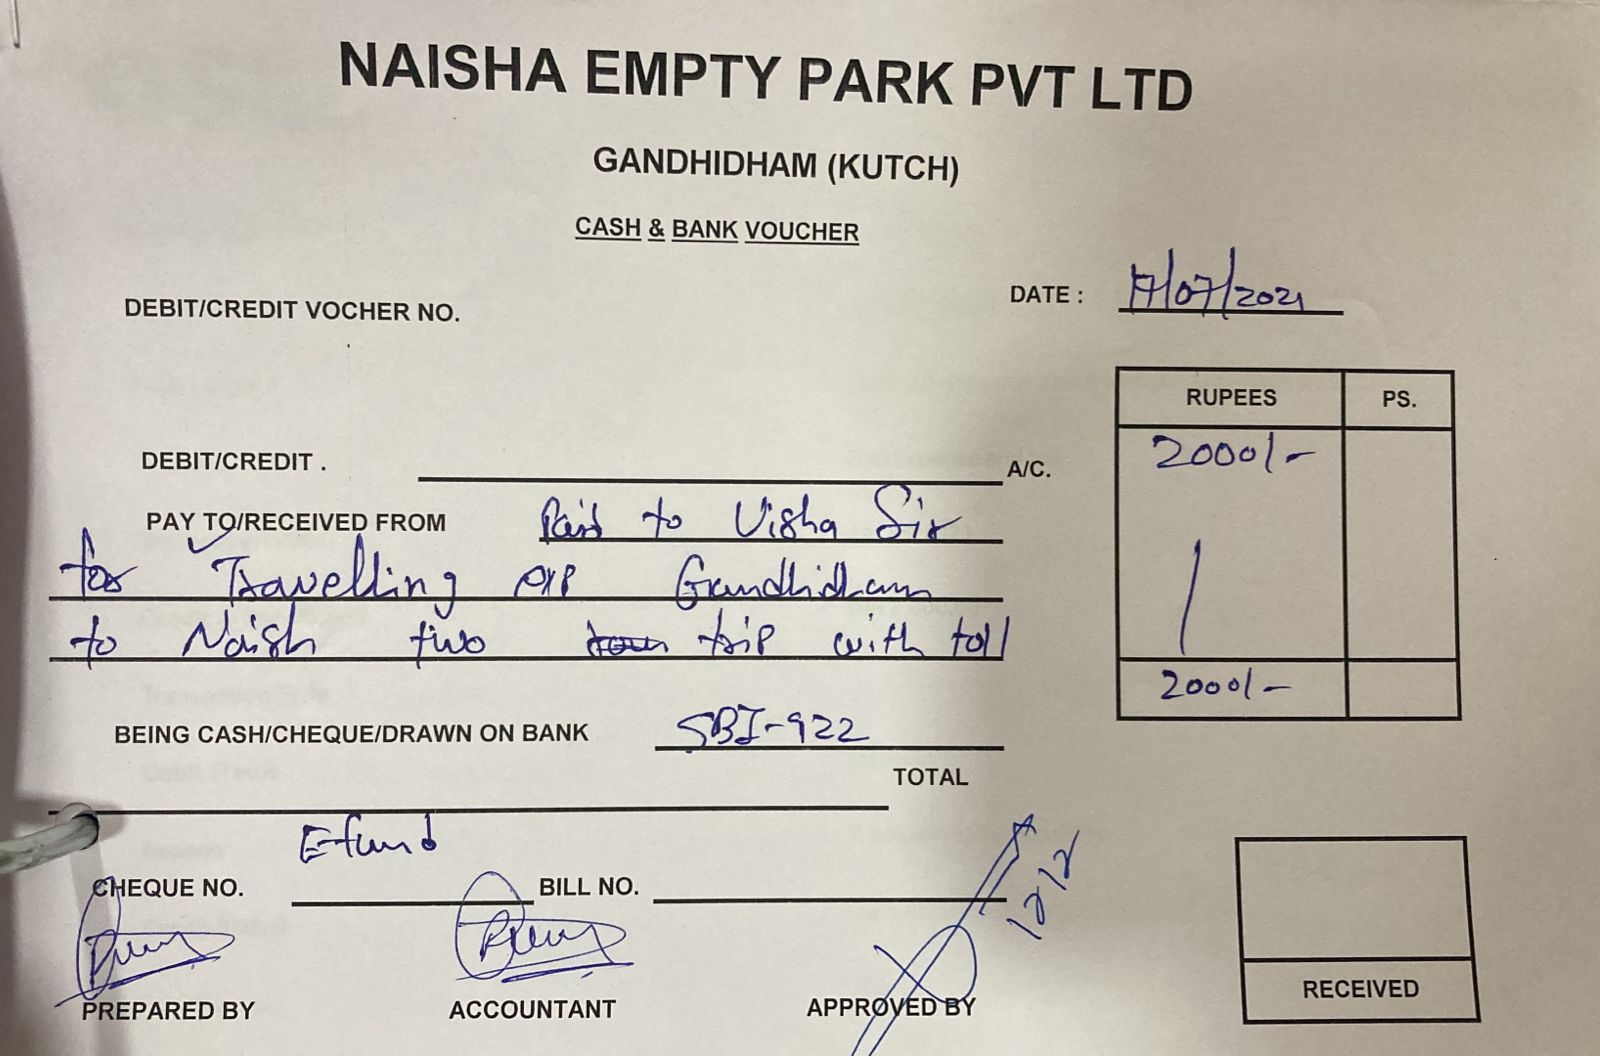 NAISHA EMPTY PARK PVT LTD
GANDHIDHAM (KUTCH)
CASH & BANK VOUCHER
DATE : 17/07/2021
DEBIT/CREDIT VOCHER NO.
RUPEES PS.
2000/-
DEBIT/CREDIT . A/C.
PAY TO/RECEIVED FROM Paid to Visha Sir
for Travelling exp Gandhidham
to Naish two trip with toll
2000/-
BEING CASH/CHEQUE/DRAWN ON BANK SBI-922
TOTAL
E-fund
CHEQUE NO. BILL NO.
PREPARED BY ACCOUNTANT APPROVED BY
RECEIVED